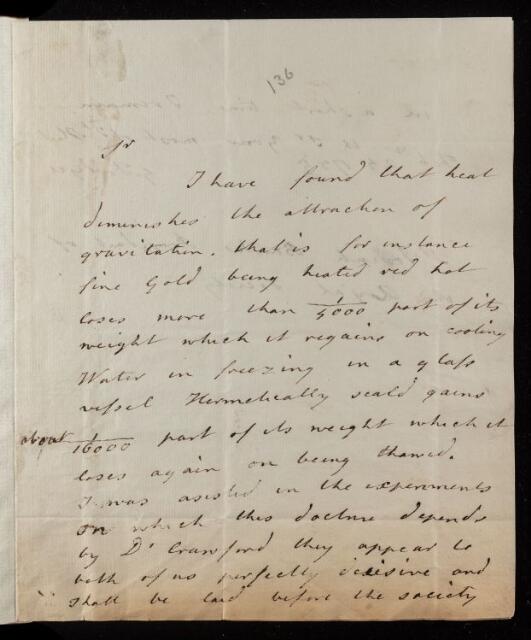 136
Sr
I have found that heat
diminishes the attraction of
gravitation. that is for instance
fine Gold being heated red hot
loses more than 1/5000 part of its
weight which it regains on cooling
Water in freezing in a glass
vessel Hermetically seald gains
about 1/16000 part of its weight which it
loses again on being thawed.
I was asisted in the experiments
on which this doctrine depends
by Dr Crawford they appear to
both of us perfectly decisive and
shall be laid before the society